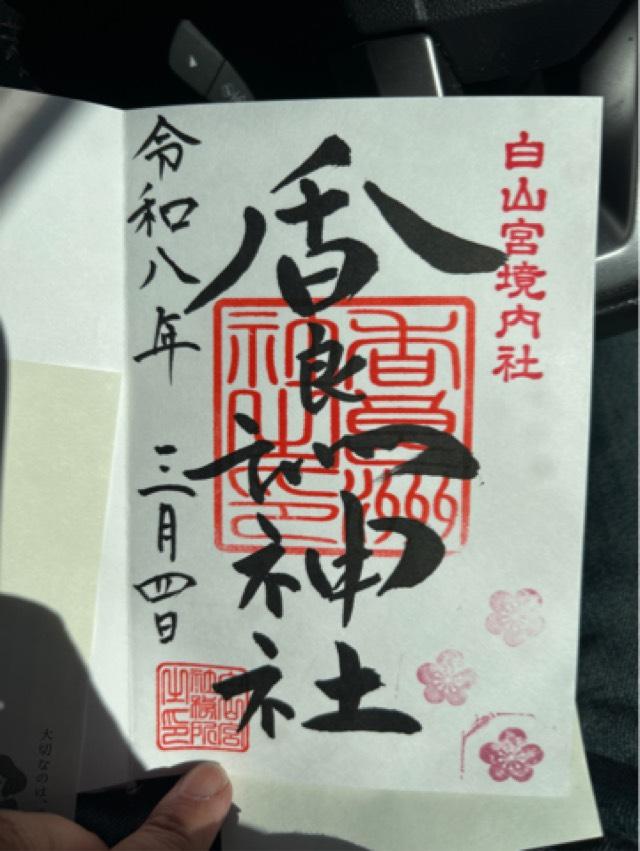 白山宮境内社
香良洲神社
令和八年 三月四日
大切なのは、